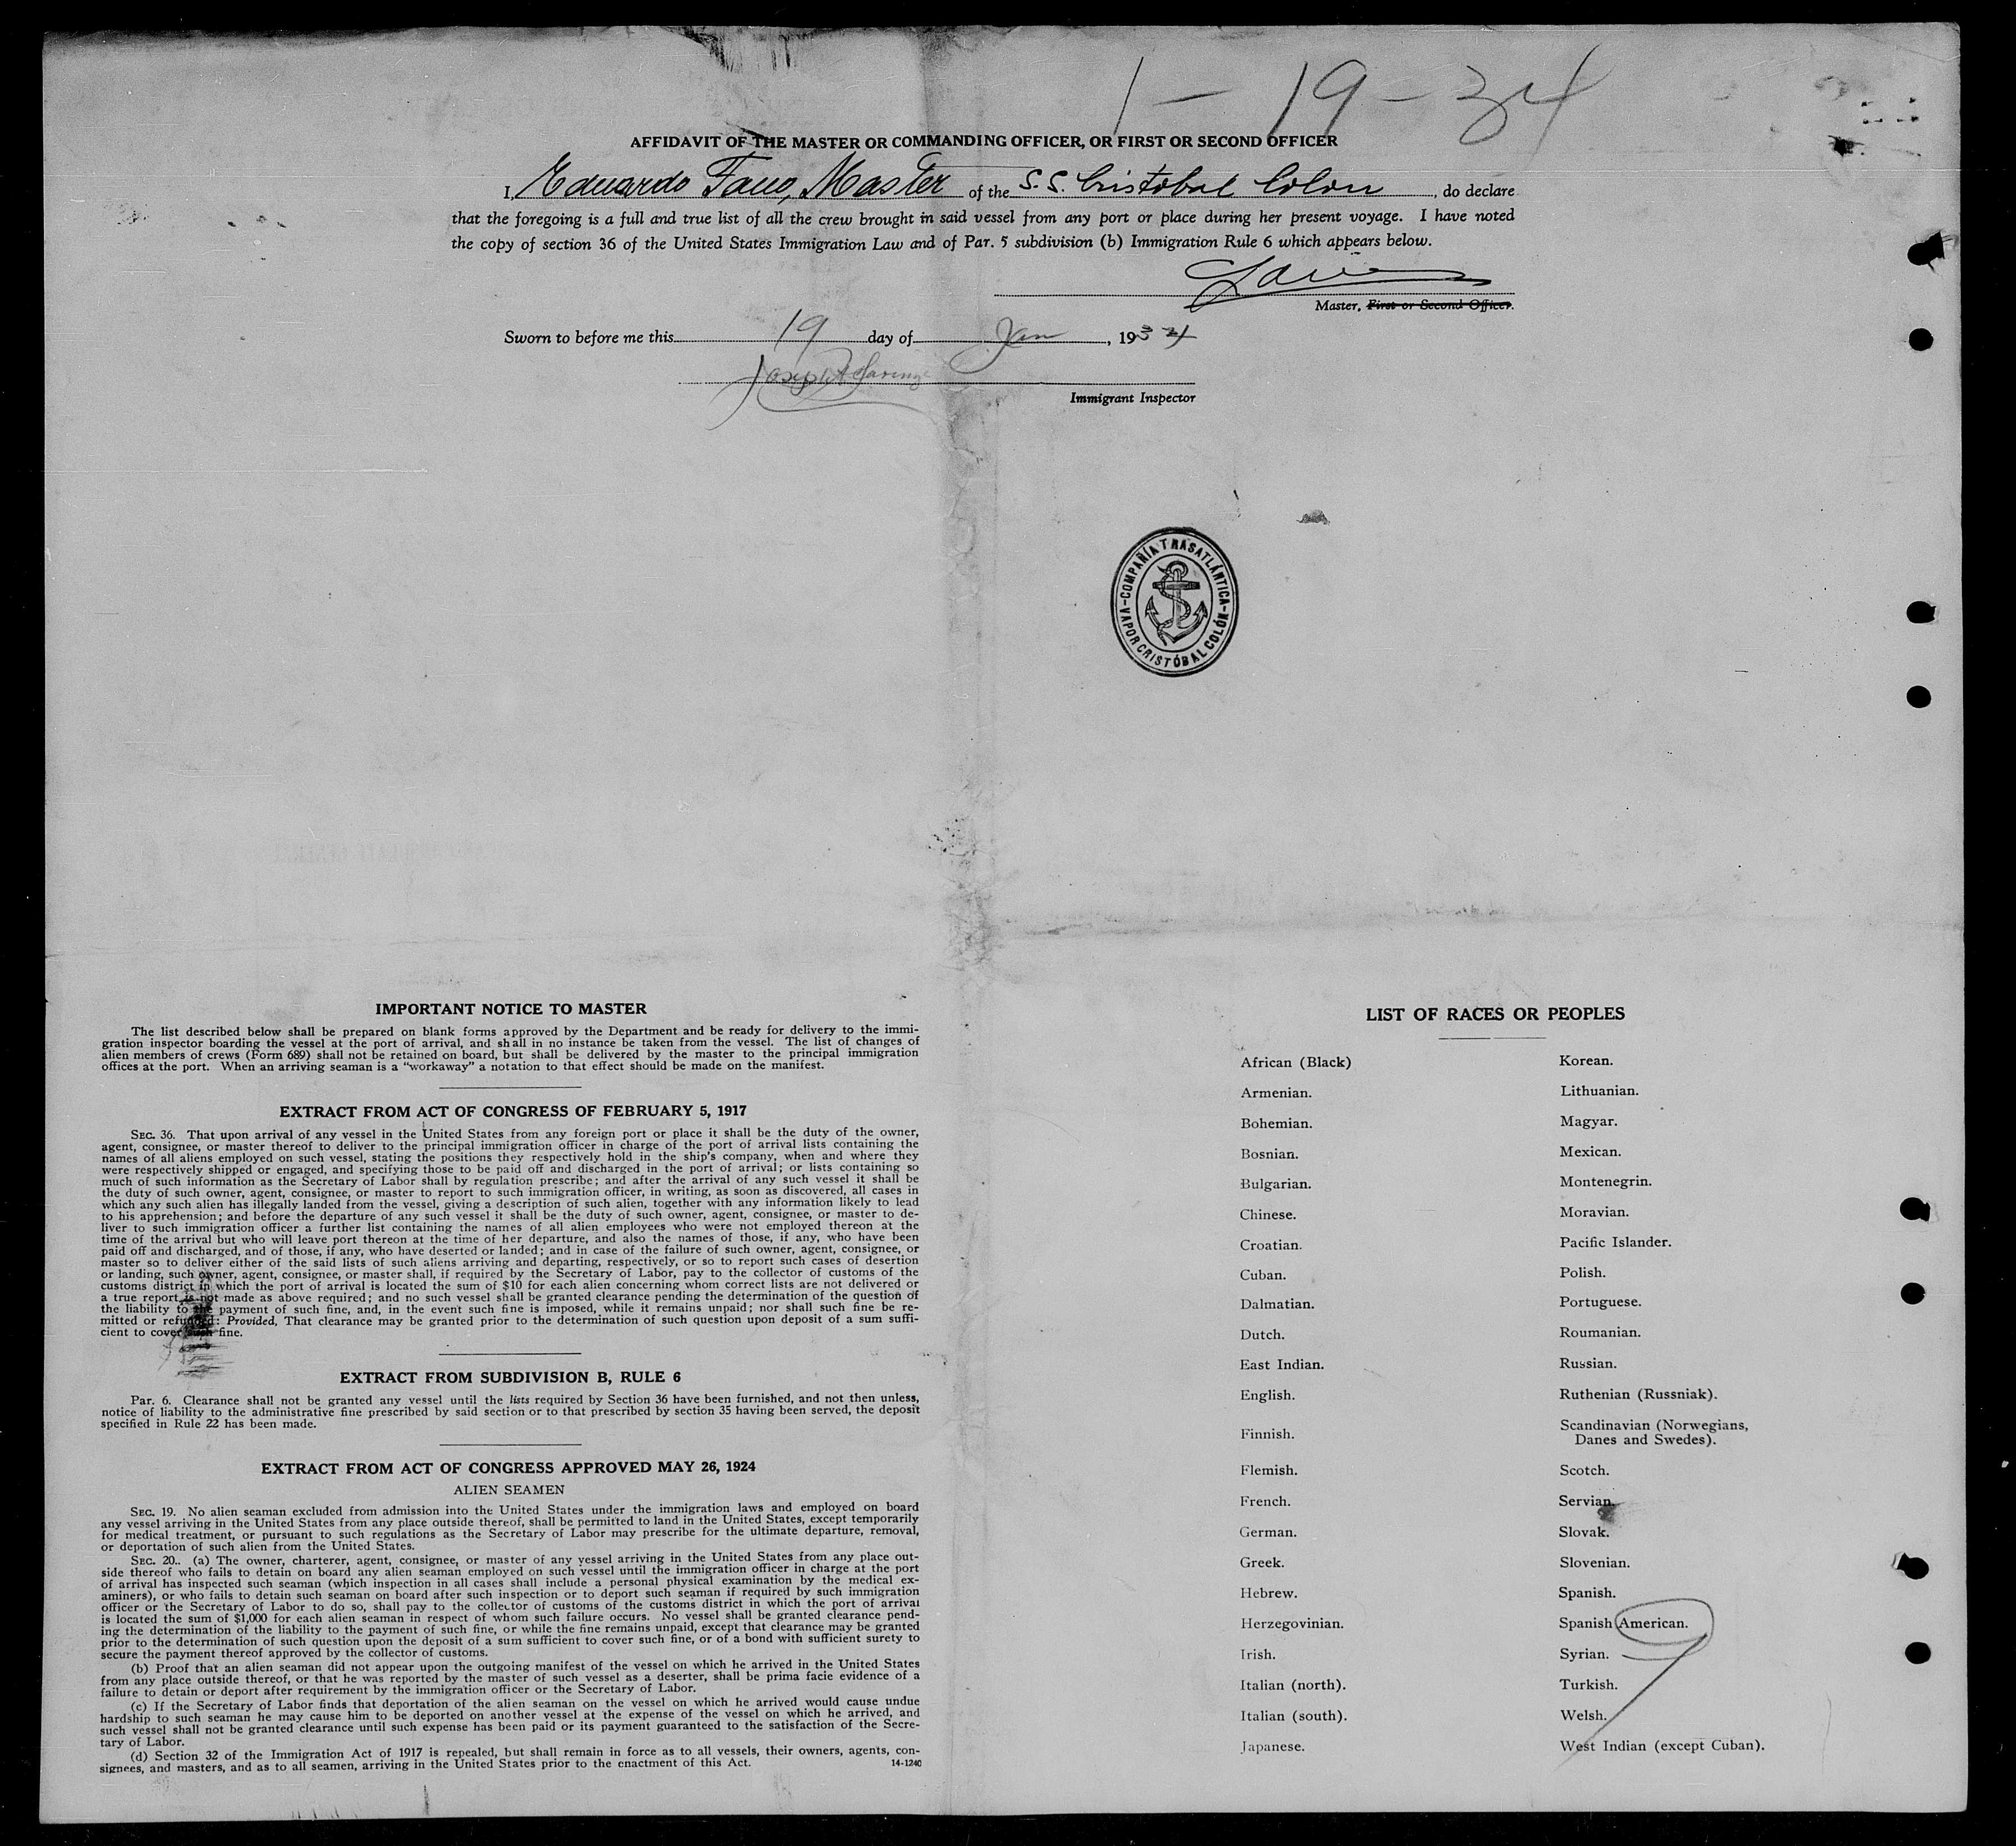 1-19-34
AFFIDAVIT OF THE MASTER OR COMMANDING OFFICER, OR FIRST OR SECOND OFFICER
I, Eduardo Fano, Master of the S.S. Cristobal Colon, do declare
that the foregoing is a full and true list of all the crew brought in said vessel from any port or place during her present voyage. I have noted
the copy of section 36 of the United States Immigration Law and of Par. 5 subdivision (b) Immigration Rule 6 which appears below.
Master, First or Second Officer.
Sworn to before me this 19 day of Jan, 1934
Joseph
Immigrant Inspector
COMPAÑÍA TRASATLÁNTICA
VAPOR CRISTÓBAL COLÓN
IMPORTANT NOTICE TO MASTER
The list described below shall be prepared on blank forms approved by the Department and be ready for delivery to the immi-
gration inspector boarding the vessel at the port of arrival, and shall in no instance be taken from the vessel. The list of changes of
alien members of crews (Form 689) shall not be retained on board, but shall be delivered by the master to the principal immigration
offices at the port. When an arriving seaman is a "workaway" a notation to that effect should be made on the manifest.
EXTRACT FROM ACT OF CONGRESS OF FEBRUARY 5, 1917
SEC. 36. That upon arrival of any vessel in the United States from any foreign port or place it shall be the duty of the owner,
agent, consignee, or master thereof to deliver to the principal immigration officer in charge of the port of arrival lists containing the
names of all aliens employed on such vessel, stating the positions they respectively hold in the ship's company, when and where they
were respectively shipped or engaged, and specifying those to be paid off and discharged in the port of arrival; or lists containing so
much of such information as the Secretary of Labor shall by regulation prescribe; and after the arrival of any such vessel it shall be
the duty of such owner, agent, consignee, or master to report to such immigration officer, in writing, as soon as discovered, all cases in
which any such alien has illegally landed from the vessel, giving a description of such alien, together with any information likely to lead
to his apprehension; and before the departure of any such vessel it shall be the duty of such owner, agent, consignee, or master to de-
liver to such immigration officer a further list containing the names of all alien employees who were not employed thereon at the
time of the arrival but who will leave port thereon at the time of her departure, and also the names of those, if any, who have been
paid off and discharged, and of those, if any, who have deserted or landed; and in case of the failure of such owner, agent, consignee, or
master so to deliver either of the said lists of such aliens arriving and departing, respectively, or so to report such cases of desertion
or landing, such owner, agent, consignee, or master shall, if required by the Secretary of Labor, pay to the collector of customs of the
customs district in which the port of arrival is located the sum of $10 for each alien concerning whom correct lists are not delivered or
a true report is not made as above required; and no such vessel shall be granted clearance pending the determination of the question of
the liability to the payment of such fine, and, in the event such fine is imposed, while it remains unpaid; nor shall such fine be re-
mitted or refunded: Provided, That clearance may be granted prior to the determination of such question upon deposit of a sum suffi-
cient to cover such fine.
EXTRACT FROM SUBDIVISION B, RULE 6
Par. 6. Clearance shall not be granted any vessel until the lists required by Section 36 have been furnished, and not then unless,
notice of liability to the administrative fine prescribed by said section or to that prescribed by section 35 having been served, the deposit
specified in Rule 22 has been made.
EXTRACT FROM ACT OF CONGRESS APPROVED MAY 26, 1924
ALIEN SEAMEN
SEC. 19. No alien seaman excluded from admission into the United States under the immigration laws and employed on board
any vessel arriving in the United States from any place outside thereof, shall be permitted to land in the United States, except temporarily
for medical treatment, or pursuant to such regulations as the Secretary of Labor may prescribe for the ultimate departure, removal,
or deportation of such alien from the United States.
SEC. 20.. (a) The owner, charterer, agent, consignee, or master of any vessel arriving in the United States from any place out-
side thereof who fails to detain on board any alien seaman employed on such vessel until the immigration officer in charge at the port
of arrival has inspected such seaman (which inspection in all cases shall include a personal physical examination by the medical ex-
aminers), or who fails to detain such seaman on board after such inspection or to deport such seaman if required by such immigration
officer or the Secretary of Labor to do so, shall pay to the collector of customs of the customs district in which the port of arrival
is located the sum of $1,000 for each alien seaman in respect of whom such failure occurs. No vessel shall be granted clearance pend-
ing the determination of the liability to the payment of such fine, or while the fine remains unpaid, except that clearance may be granted
prior to the determination of such question upon the deposit of a sum sufficient to cover such fine, or of a bond with sufficient surety to
secure the payment thereof approved by the collector of customs.
(b) Proof that an alien seaman did not appear upon the outgoing manifest of the vessel on which he arrived in the United States
from any place outside thereof, or that he was reported by the master of such vessel as a deserter, shall be prima facie evidence of a
failure to detain or deport after requirement by the immigration officer or the Secretary of Labor.
(c) If the Secretary of Labor finds that deportation of the alien seaman on the vessel on which he arrived would cause undue
hardship to such seaman he may cause him to be deported on another vessel at the expense of the vessel on which he arrived, and
such vessel shall not be granted clearance until such expense has been paid or its payment guaranteed to the satisfaction of the Secre-
tary of Labor.
(d) Section 32 of the Immigration Act of 1917 is repealed, but shall remain in force as to all vessels, their owners, agents, con-
signees, and masters, and as to all seamen, arriving in the United States prior to the enactment of this Act.
14-1240
LIST OF RACES OR PEOPLES
African (Black)
Armenian.
Bohemian.
Bosnian.
Bulgarian.
Chinese.
Croatian.
Cuban.
Dalmatian.
Dutch.
East Indian.
English.
Finnish.
Flemish.
French.
German.
Greek.
Hebrew.
Herzegovinian.
Irish.
Italian (north).
Italian (south).
Japanese.
Korean.
Lithuanian.
Magyar.
Mexican.
Montenegrin.
Moravian.
Pacific Islander.
Polish.
Portuguese.
Roumanian.
Russian.
Ruthenian (Russniak).
Scandinavian (Norwegians,
Danes and Swedes).
Scotch.
Servian.
Slovak.
Slovenian.
Spanish.
Spanish American.
Syrian.
Turkish.
Welsh.
West Indian (except Cuban).